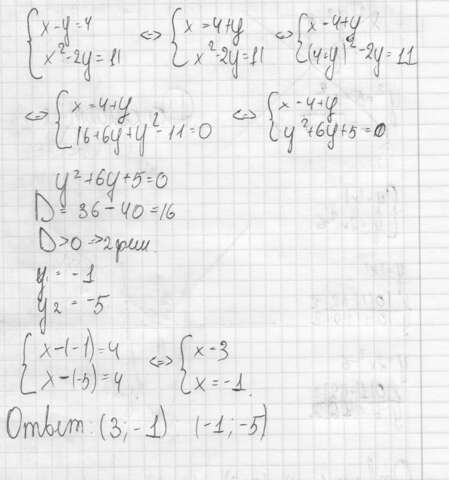 {x-y=4 <=> {x=4+y <=> {x-4+y
{x²-2y=11 {x²-2y=11 {(4+y)²-2y=11
<=> {x=4+y <=> {x-4+y
{16+6y+y²-11=0 {y²+6y+5=0
y²+6y+5=0
D= 36-40=16
D>0 => 2 реш.
y₁ = -1
y₂ = -5
{x-(-1)=4 <=> {x-3
{x-(-5)=4 {x=-1.
Ответ: (3;-1) (-1;-5)